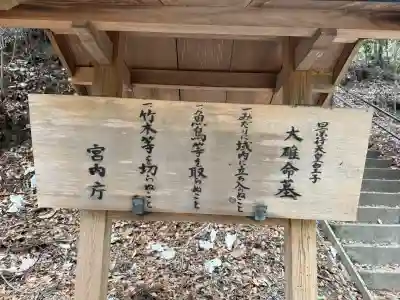 景行天皇皇子
大碓命墓
一みだりに域内に立ち入らぬこと
一魚鳥等を取らぬこと
一竹木等を切らぬこと
宮内庁